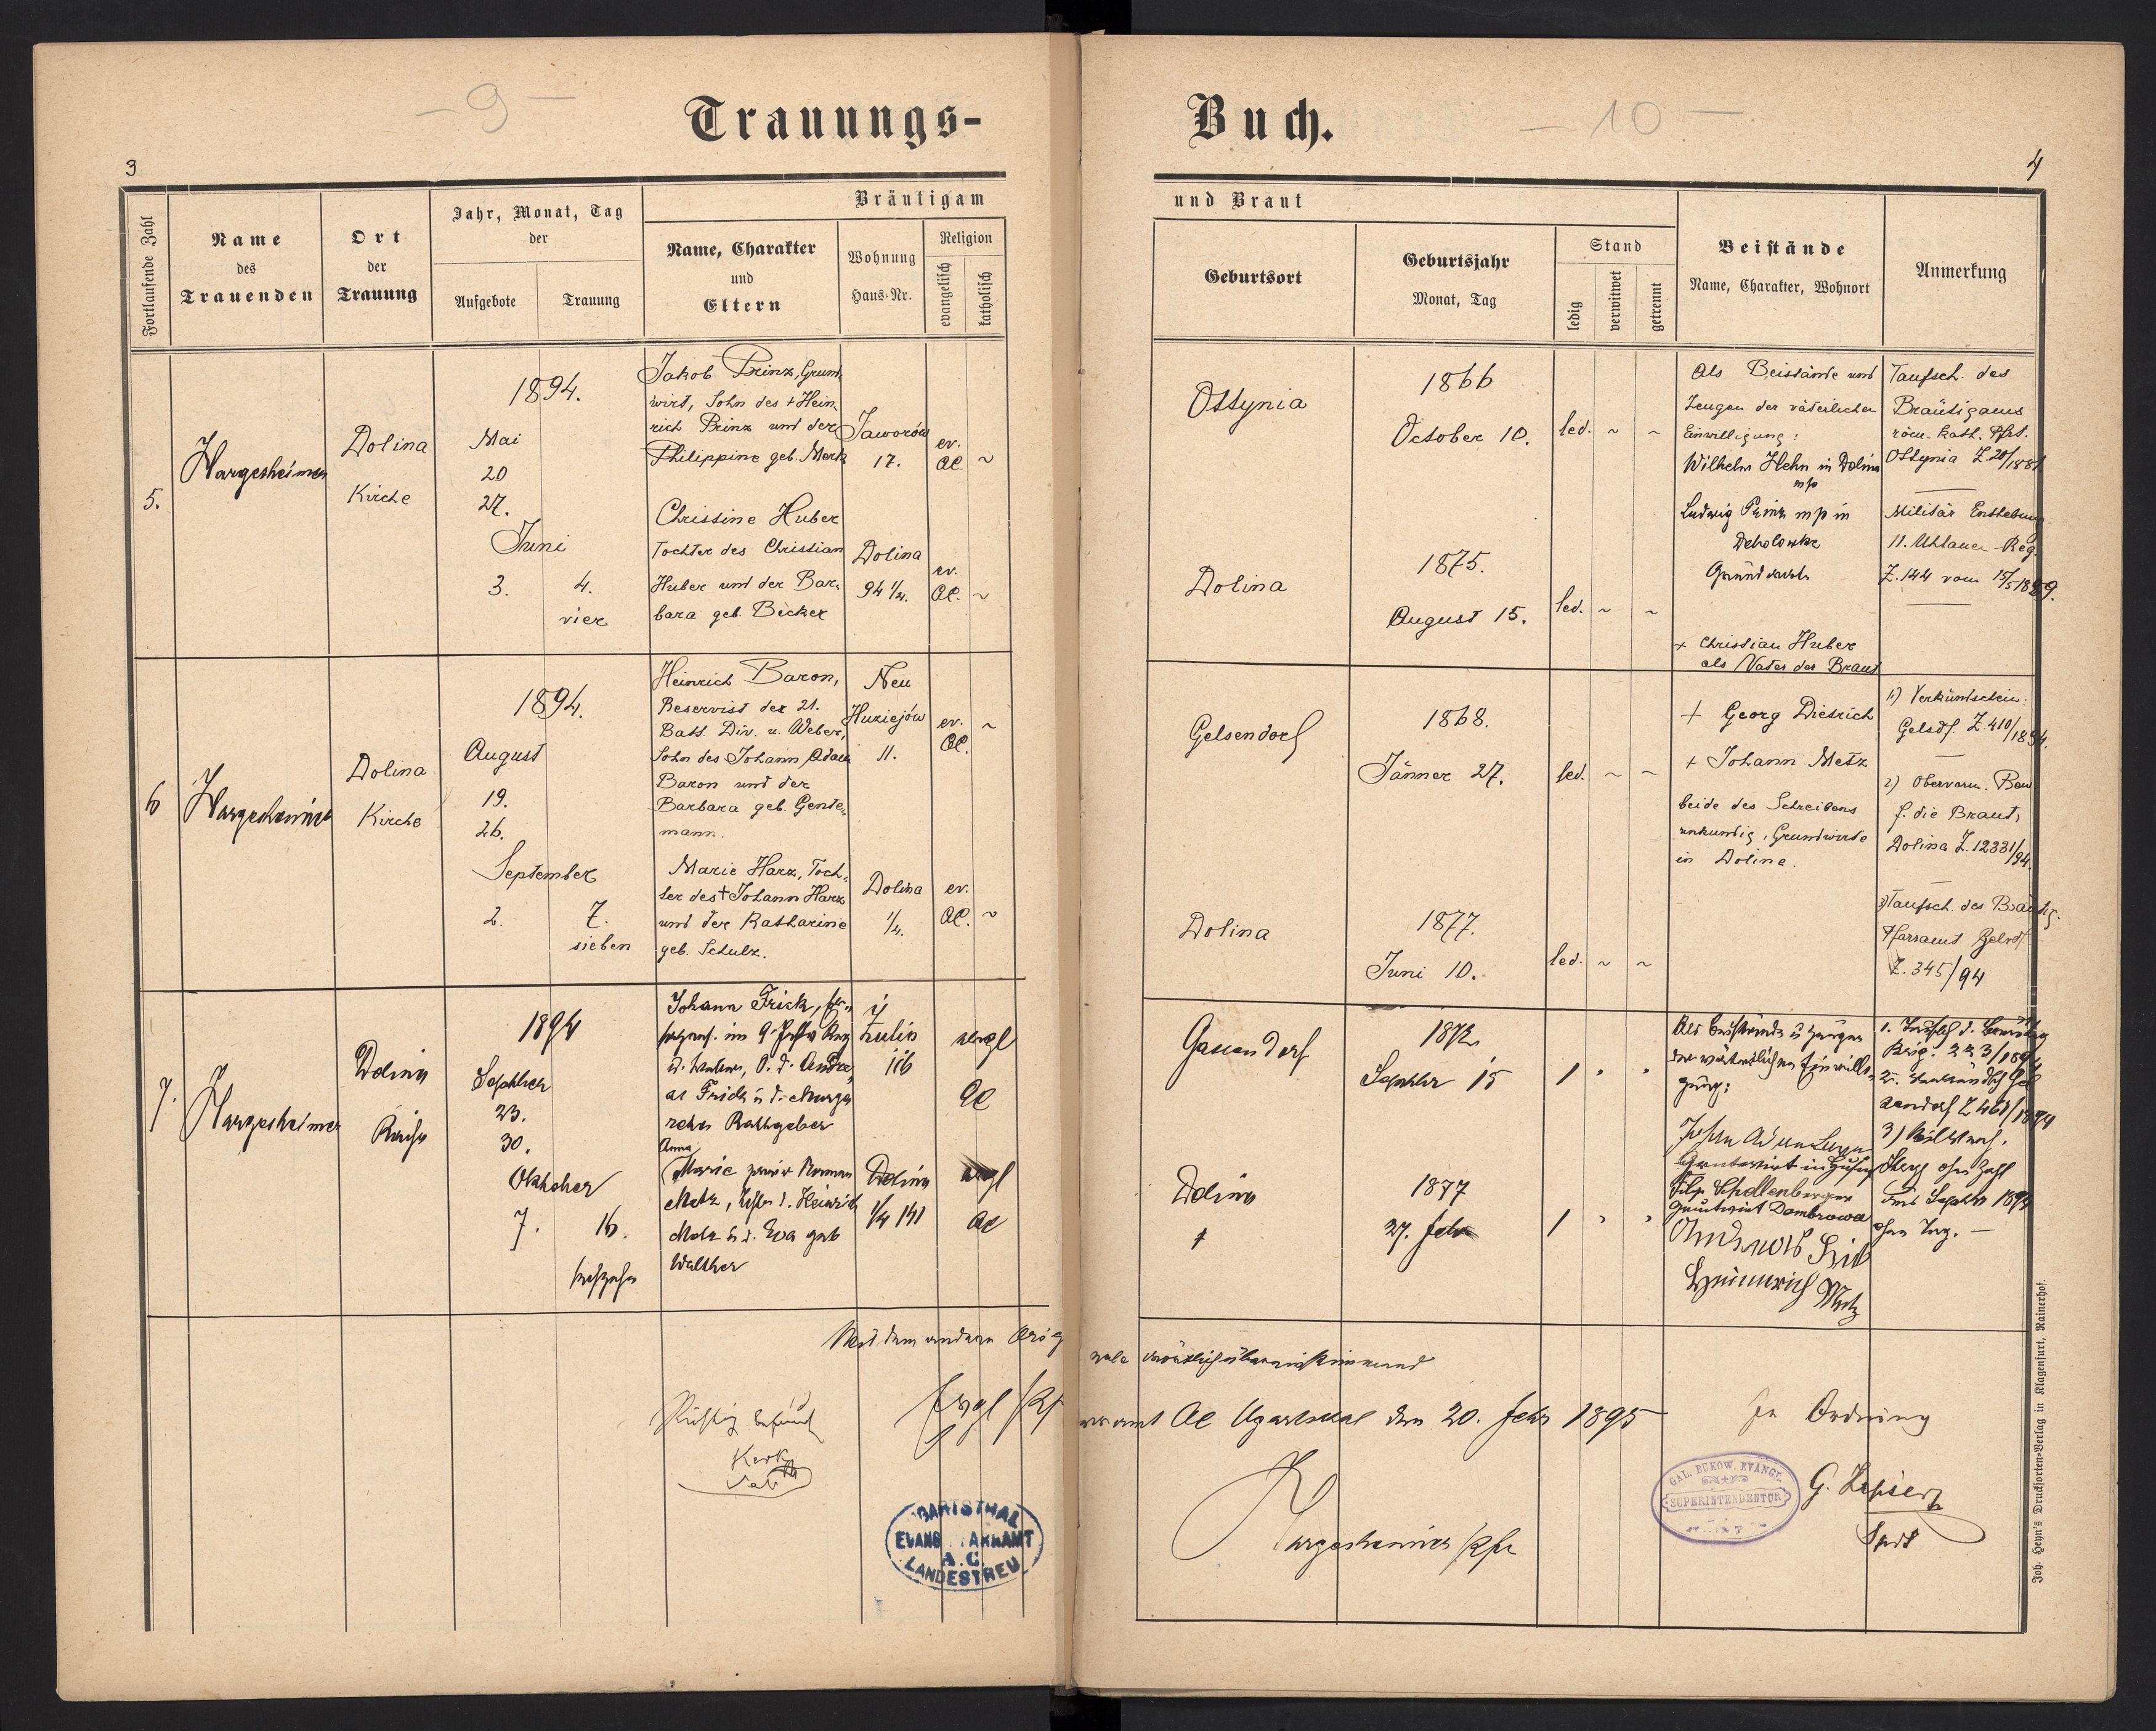 - 9 -
Trauungs-
3
Fortlaufende Zahl
Name
des
Trauenden
Ort
der
Trauung
Jahr, Monat, Tag
der
Aufgebote
Trauung
Bräutigam
Name, Charakter
und
Eltern
Wohnung
Haus-Nr.
Religion
evangelisch
katholisch
5.
Hargesheimer
Dolina
Kirche
1894.
Mai
20
27.
Juni
3.
4.
vier
Jakob Prinz, Grund-
wirt, Sohn des + Hein-
rich Prinz und der
Philippine geb. Merk
Jaworów
17.
ev.
AC.
~
Christine Huber
Tochter des Christian
Huber und der Bar-
bara geb. Becker
Dolina
94 1/4.
ev.
AC.
~
6
Hargesheimer
Dolina
Kirche
1894.
August
19.
26.
September
2.
7.
sieben
Heinrich Baron,
Reservist der 21.
Batt. Div. u. Weber,
Sohn des Johann Adam
Baron und der
Barbara geb. Gente-
mann.
Neu
Huziejów
11.
ev.
AC.
~
Marie Harz, Toch-
ter des + Johann Harz
und der Katharine
geb. Schulz.
Dolina
1/4.
ev.
AC.
~
7.
Hargesheimer
Dolina
Kirche
1894
Septber
23.
30.
Oktober
7.
16.
sechzehn
Johann Frick,
im 9
O. d. Andre-
as Frick u. d. Marga-
retha Rathgeber
Zulin
116
evgl
AC
Anna
Marie
Metz, d. Heinrich
Metz u. d. Eva geb
Walther
Dolina
1/4 141
evgl
AC
Mit dem andern Orig
Richtig befund
Kerk
Evgl Pf
BARTSTHAL
EVANG. ARRAMT
A.C.
LANDESTREU
Buch.
- 10 -
4
und Braut
Geburtsort
Geburtsjahr
Monat, Tag
Stand
ledig
verwitwet
getrennt
Beistände
Name, Charakter, Wohnort
Anmerkung
Ottynia
1866
October 10.
led. ~ ~
Als Beistände und
Zeugen der väterlichen
Einwilligung:
Wilhelm Hehn in Dolina
mp
Ludwig Prinz mp in
Debolowka
Grundwirth
Taufsch. des
Bräutigams
röm. kath. Pfrt.
Ottynia Z. 20/1881
Militär Enthebung
11. Uhlanen-Reg.
Z. 144 vom 15/5 1889.
Dolina
1875.
August 15.
led. ~ ~
+ Christian Huber
als Vater der Braut
Gelsendorf
1868.
Jänner 27.
led. ~ ~
+ Georg Dietrich
+ Johann Metz
beide des Schreibens
unkundig, Grundwirte
in Dolina.
1) Verkündschein:
Gelsdf. Z. 410/1894.
2) Obervorm. Bew
f. die Braut,
Dolina Z. 12331/94.
3) Taufsch. des Bräutig.
Pfarramt Gelsdf.
Z. 345/94
Dolina
1877.
Juni 10.
led. ~ ~
Gassendorf
1872
Septber 15
1
Als Beistände u Zeugen
der väterlichen Einwilli-
gung:
Grundwirt in
Filip Schollenberger
Grundwirt Dombrowa
Heinnrich Metz
Septbr 1894
Dolina
1877
27. Febr
1
wörtlich übereinstimmend
AC Ugartsthal den 20. Febr 1895
Hargesheimer Pfr
In Ordnung
GAL. BUKOW. EVANGL.
SUPERINTENDENTUR
Joh. Heyn's Drucksorten-Verlag in Klagenfurt, Rainerhof.